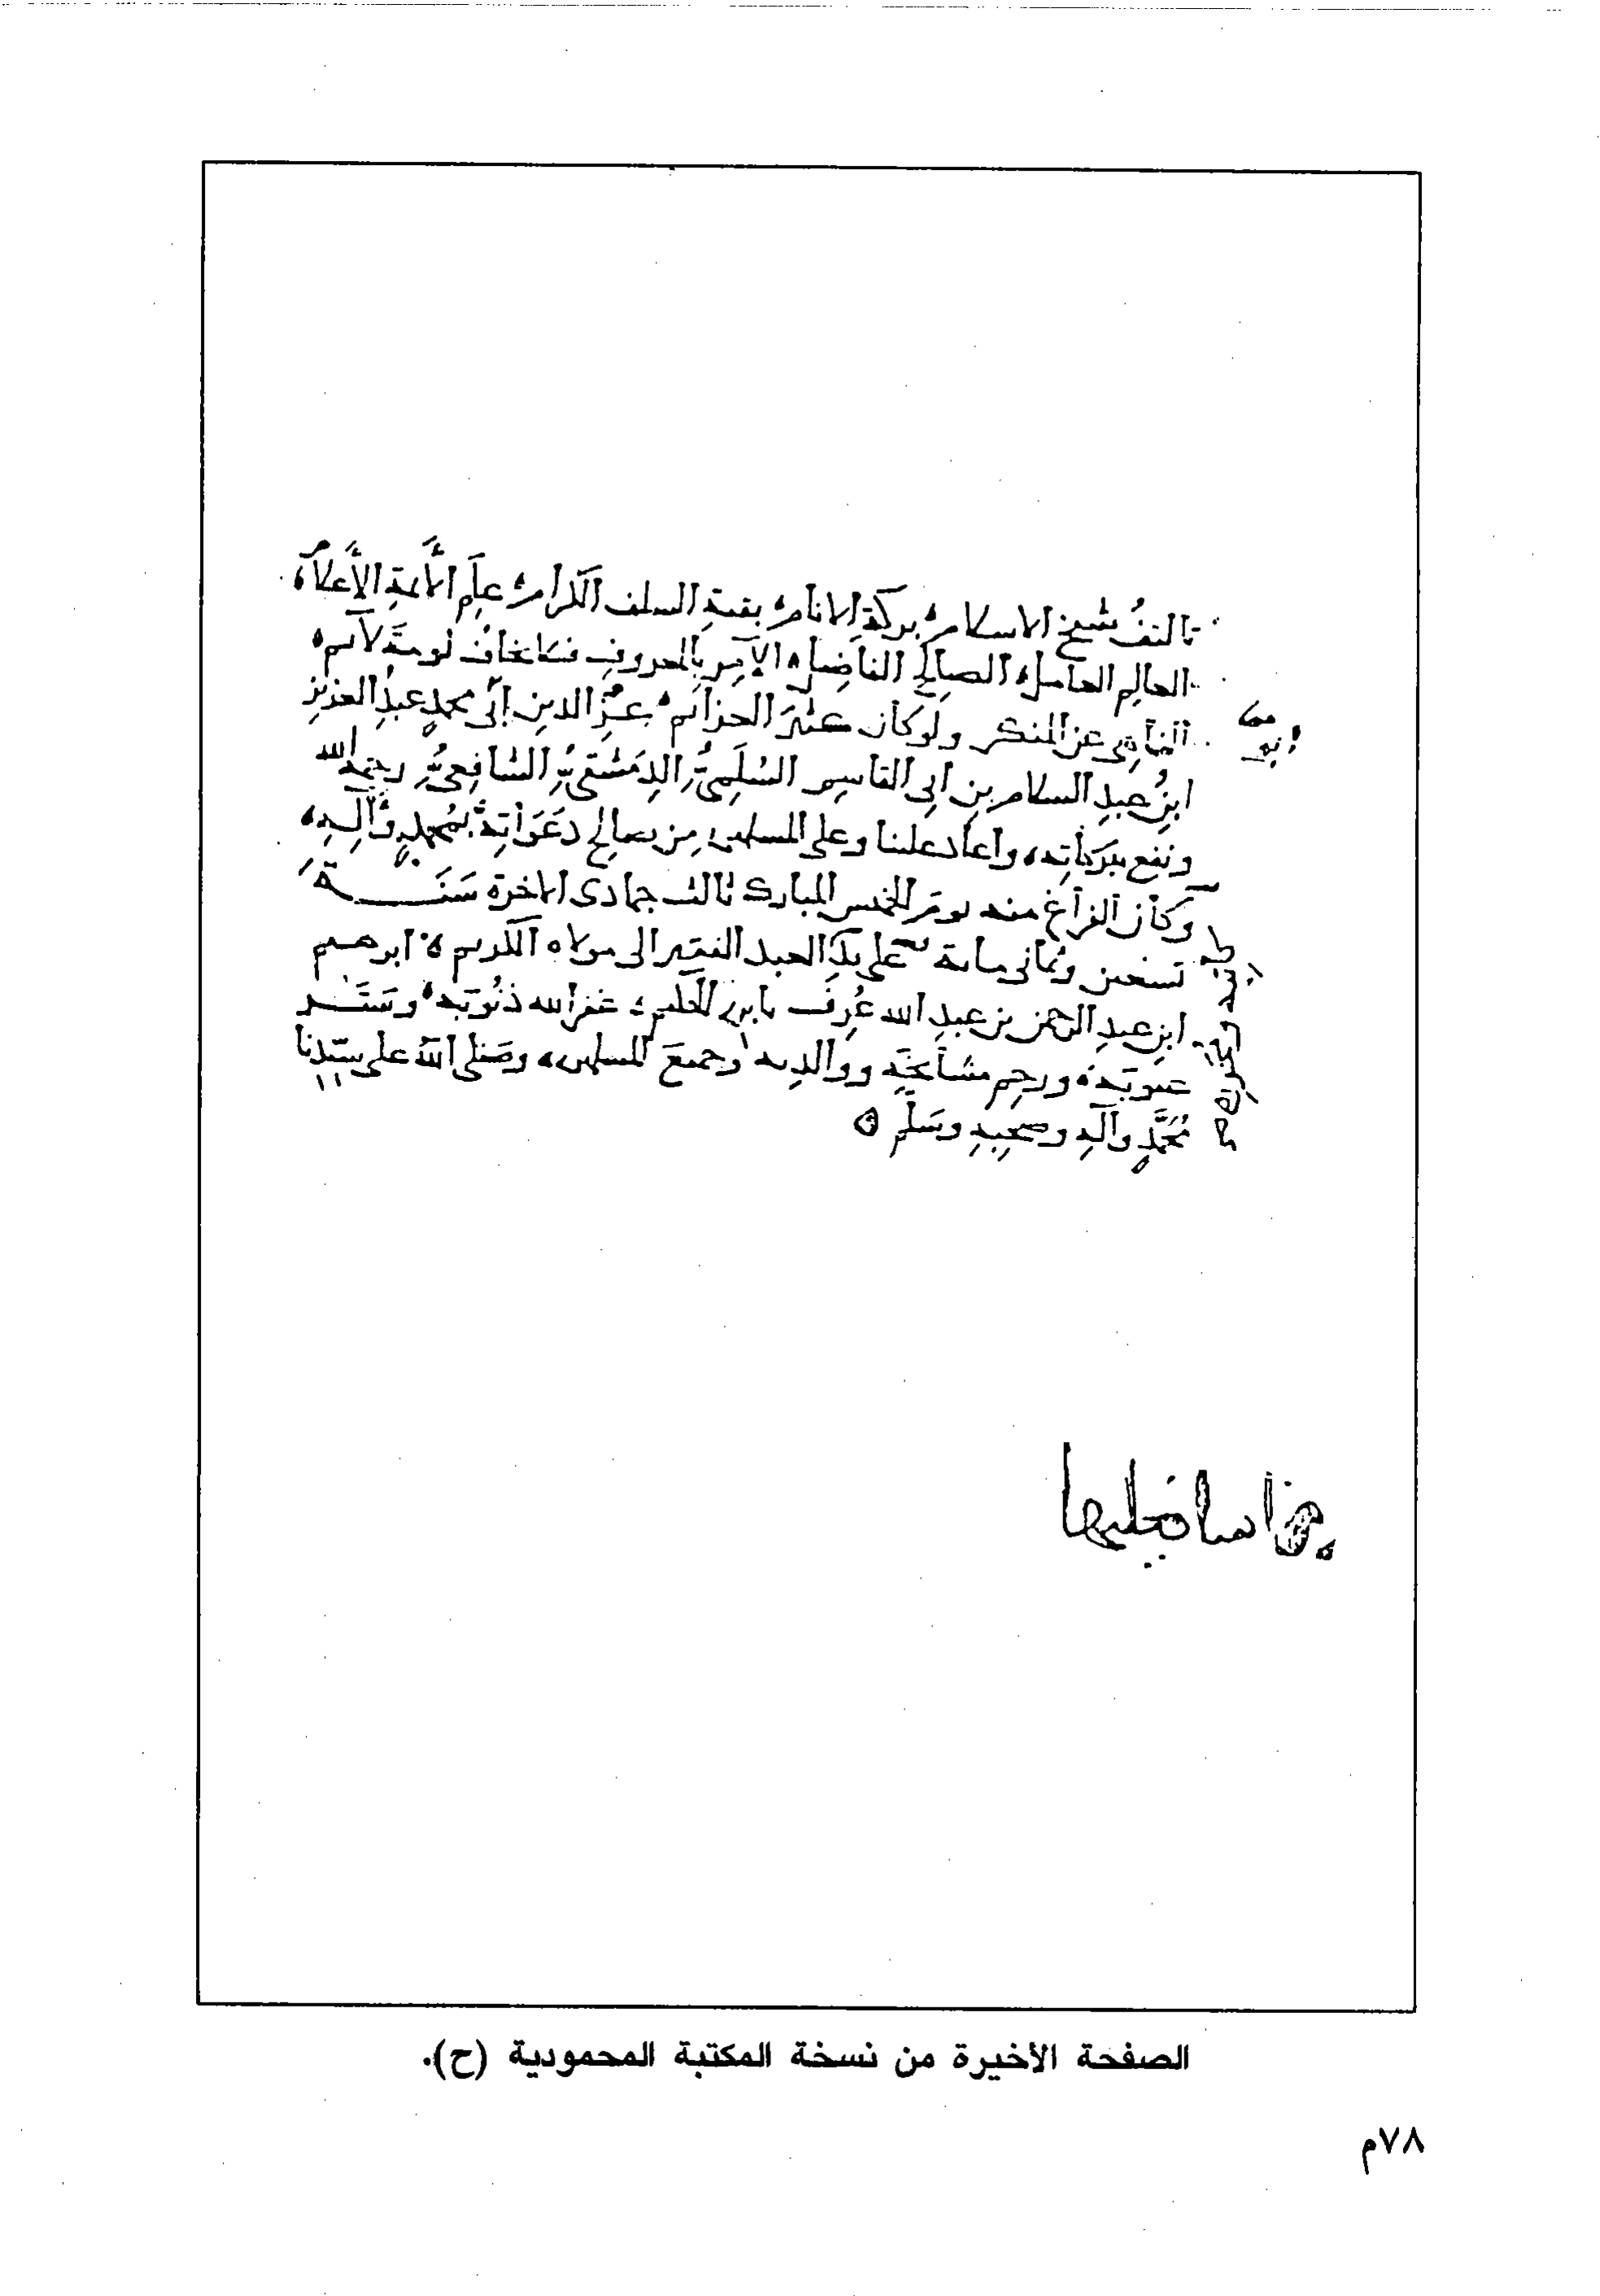 تاليفُ شيخ الاسلام بركةِ الانام بقيةِ السلف الكرام علَم الأئمةِ الأعلام
العالِم العامل الصالح الفاضل الآمِر بالمعروف فلا يخاف لومةَ لآئم
الناهي عن المنكر ولو كان عند العزائم عزِّ الدين أبي محمدٍ عبدِ العزيز
ابنِ عبدِ السلام بن ابي القاسِم السُلَمِيِّ الدِمَشقيِّ الشافِعيِّ رحمه الله
ونفع ببركاته واعاد علينا وعلى المسلمين مِن صالح دَعَوَاتِه بمُحمدٍ وآله
وكان الفراغ منه يومَ الخميس المبارك ثالث جمادى الاخرة سَنَة
تسعين وثمانى ماية على يدِ العبد الفقير الى مولاه الكريم ابرهيم
ابن عبدِ الرحمن بن عبدِ الله عُرِفَ بابن غفر الله ذنُوبَه وسَتَر
عيوبَه ورحِم مشايخَه ووالدِيه وجميعَ المسلمين وصَلى اللهُ على سيّدنا
مُحَمَّدٍ وآلهِ وصحبِه وسَلَّم
الصفحة الأخيرة من نسخة المكتبة المحمودية (ح).
٧٨م